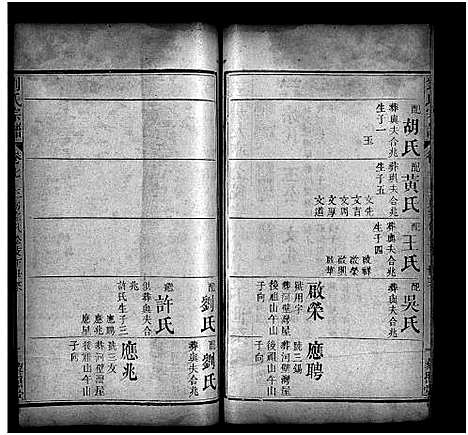 配
胡氏
葬與夫合兆
生子一
玉
配
黃氏
葬與夫合兆
生子五
文先
文吉
文周
文厚
文道
配
王氏
葬與夫合兆
生子四
啟祥
啟榮
啟興
啟華
配
吳氏
葬與夫合兆
應聘
號三錫
葬河壁灣屋
後雞山午山
子向
啟榮
號用宇
葬河壁灣屋
後雞山午山
子向
配
劉氏
繼
許氏
俱葬與夫合
兆
許氏生子三
應聘
應兆
應星
配
劉氏
葬與夫合兆
應兆
號三友
葬河壁灣屋
後雞山午山
子向